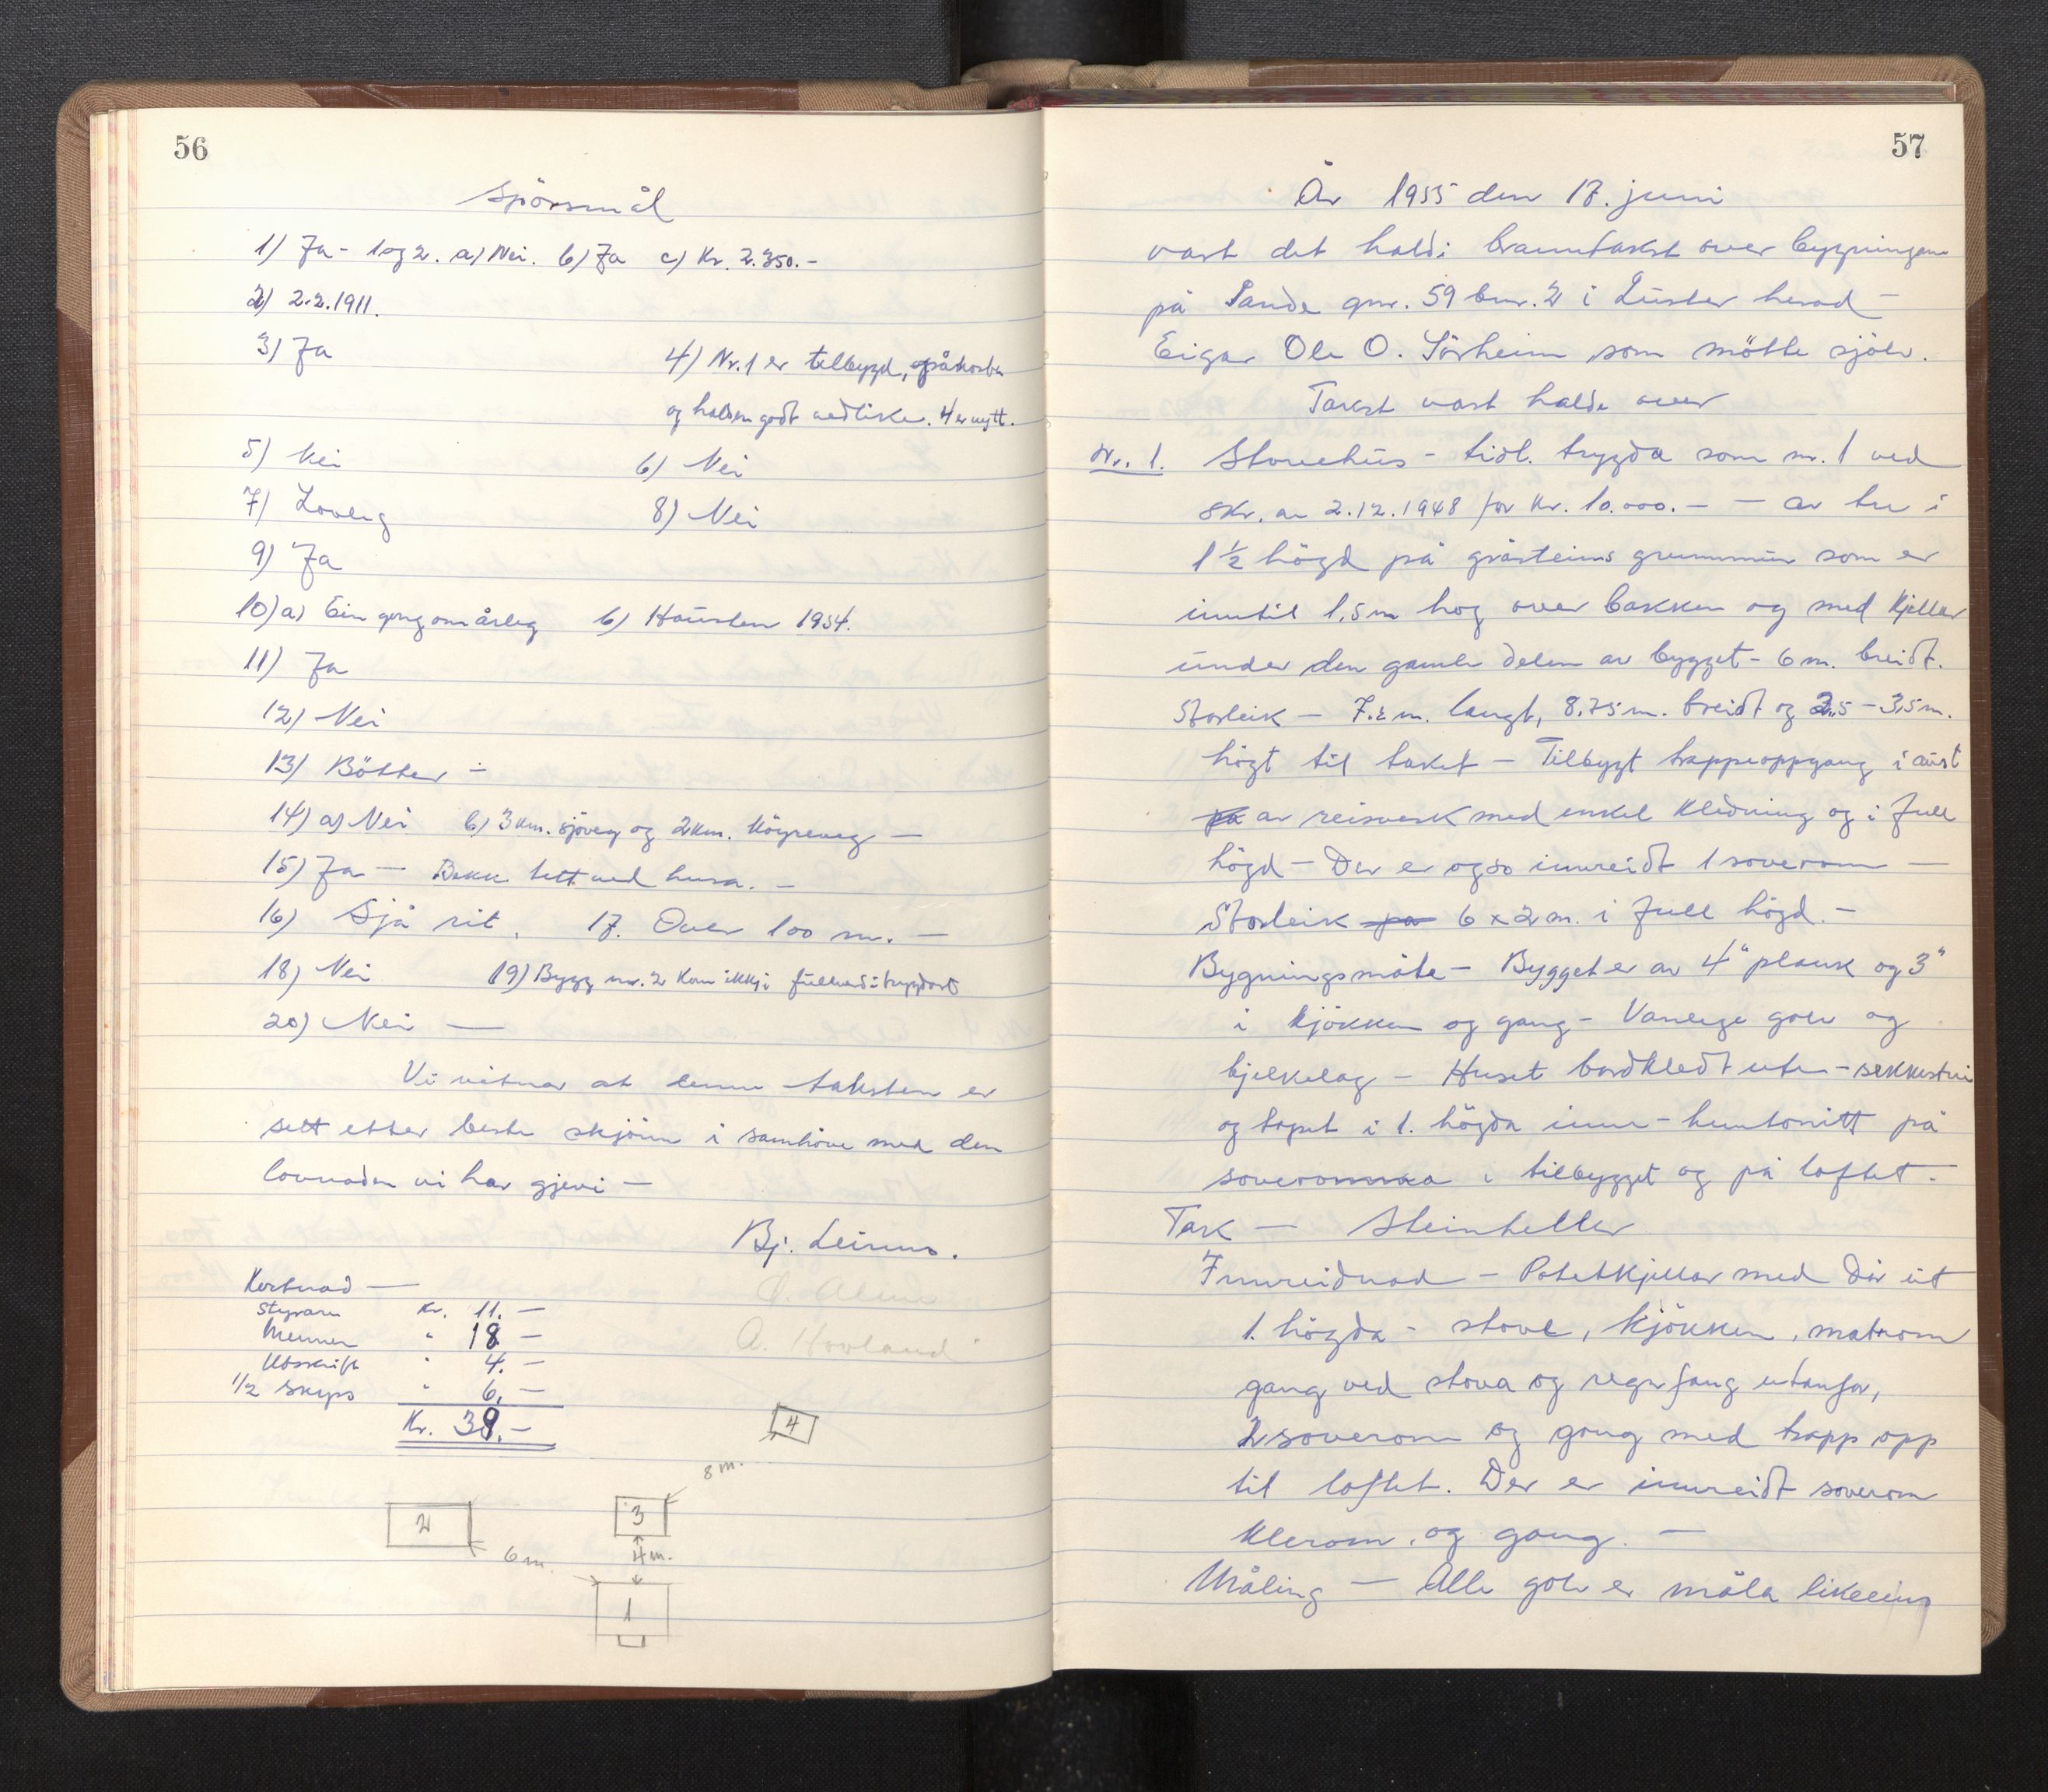 56
Spörsmål
1) Ja - 1 og 2. a) Nei. b) Ja c) Kr. 2.350.-
2) 2.2.1911.
3) Ja
4) Nr. 1 er tilbygd, påkosta
og halden godt vedlike. 4 er nytt.
5) Nei 6) Nei
7) Lovleg 8) Nei
9) Ja
10) a) Ein gong om årleg b) Hausten 1954.
11) Ja
12) Nei
13) Bötter -
14) a) Nei b) 3 km. sjöveg og 2 km. köyreveg —
15) Ja — Bekk tett ved husa. -
16) Sjå rit. 17. Over 100 m. —
18) Nei 19) Bygg nr. 2 kan ikkje fullverditrygdast
20) Nei —
Vi vitnar at denne taksten er
sett etter beste skjönn i samhöve med den
lovnaden vi har gjevi —
Bj. Leirmo.
A. Hovland
Kostnad —
Styraren Kr. 11. —
Mennen " 18 —
Utskrift " 4. —
1/2 skyss " 6. —
Kr. 39.-
4
8 m.
2
3
6 m.
4 m.
1
57
År 1955 den 17. juni
vart det haldi branntakst over bygningane
på Sande gnr. 59 bnr. 2 i Luster herad —
Eigar Ole O. Sörheim som mötte sjölv.
Takst vart halde over
Nr. 1. Stovehus - tidl. trygda som nr. 1 ved
skr. av 2.12.1948 for kr. 10.000.- — av tre i
1 1/2 högd på gråsteins grunnmur som er
inntil 1,5 m hog over bakken og med kjellar
under den gamle delen av bygget - 6 m. breidt.
Storleik — 7.2 m. langt, 8,75 m. breidt og 2,5 - 3,5 m.
högt til taket — Tilbygt trappeoppgang i aust
på av reisverk med enkel kledning og i full
högd — Der er ogso innreidt 1 soverom —
Storleik på 6 x 2 m. i full högd. -
Bygningsmåte - Bygget er av 4" plank og 3"
i kjökken og gang - Vanlege golv og
bjelkelag — Huset bordkledt ute - sekkestri
og tapet i 1. högda inne - huntonitt på
soveromma i tilbygget og på loftet -
Tak — Steinheller
Innreidnad — Potetkjellar med dör ut
1. högda - stove, kjökken, matrom
gang ved stova og regnfang utanfor,
2 soverom og gang med trapp opp
til loftet. Der er innreidt soverom
klerom. og gang. —
Måling — Alle golv er måla likeeins